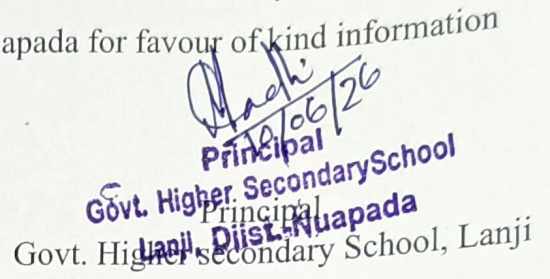 apada for favour of kind information
10/06/26
Principal
Govt. Higher SecondarySchool
Lanji, Diist.-Nuapada
Principal
Govt. Higher secondary School, Lanji